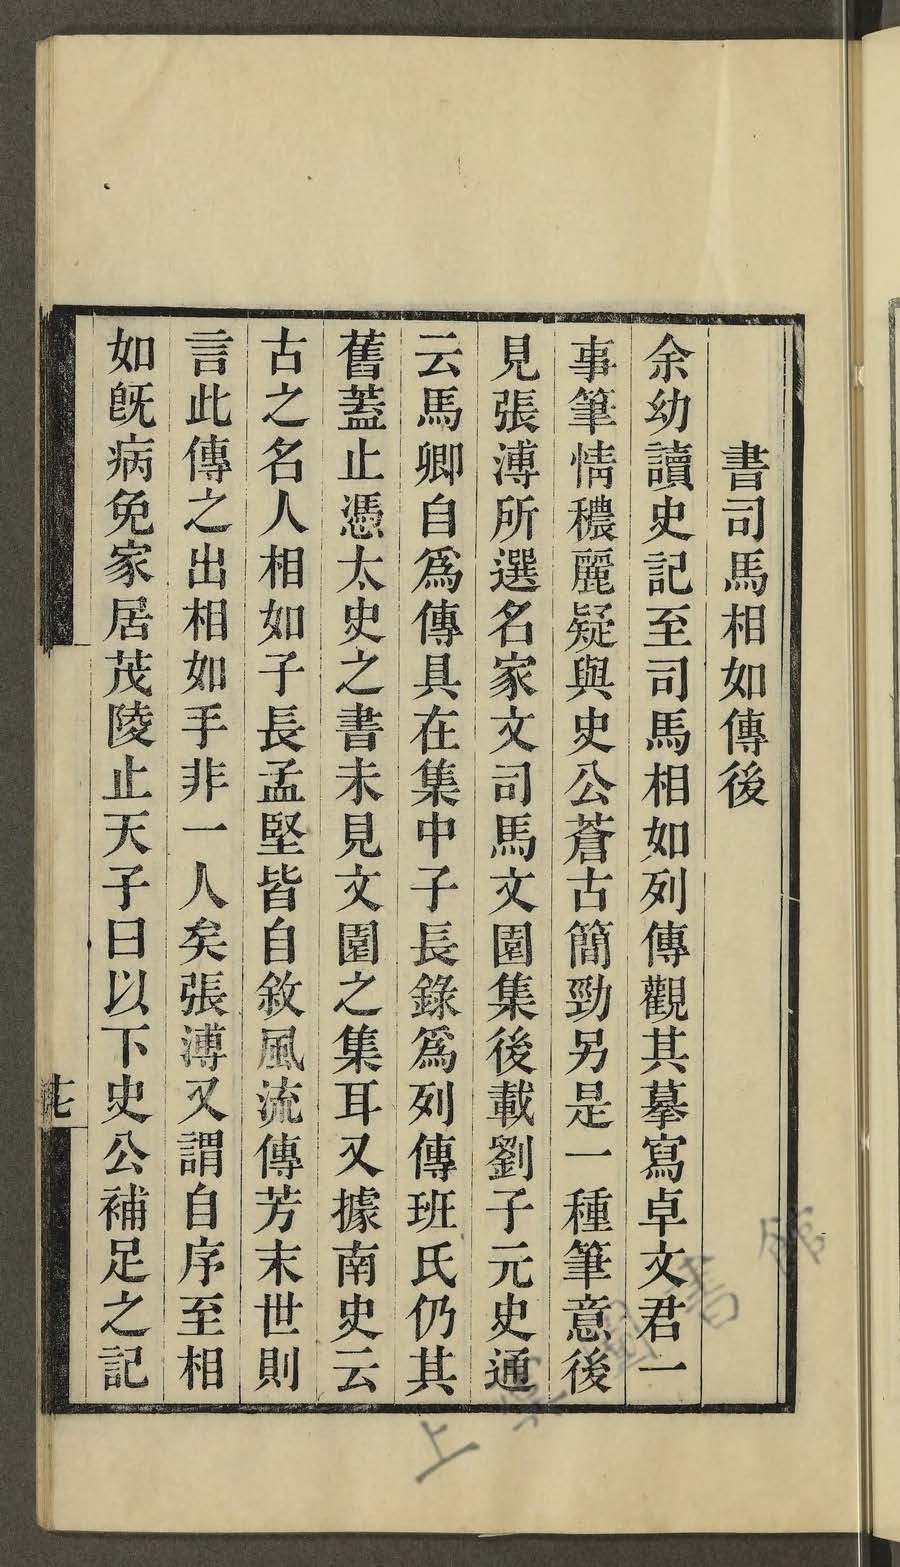 書司馬相如傳後
余幼讀史記至司馬相如列傳觀其摹寫卓文君一
事筆情穠麗疑與史公蒼古簡勁另是一種筆意後
見張溥所選名家文司馬文園集後載劉子元史通
云馬卿自爲傳具在集中子長錄爲列傳班氏仍其
舊蓋止憑太史之書未見文園之集耳又據南史云
古之名人相如子長孟堅皆自敘風流傳芳末世則
言此傳之出相如手非一人矣張溥又謂自序至相
如旣病免家居茂陵止天子曰以下史公補足之記
上
圖書館